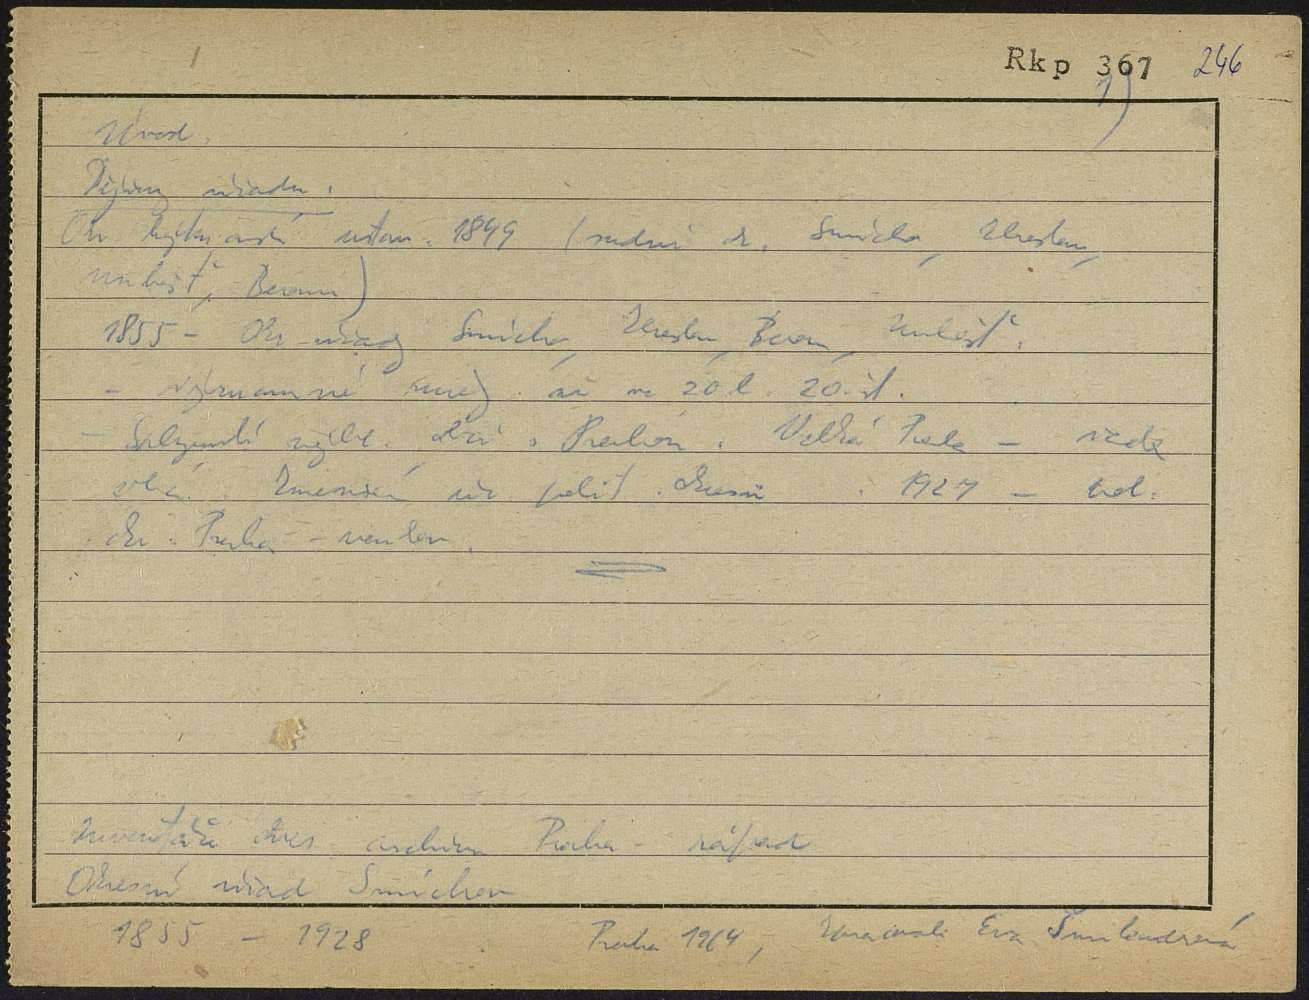 Rkp 367 246
1)
Úvod.
Dějiny úřadu.
Okr hejtmanství ustan. 1849 (soudní okr. Smíchov, Zbraslav,
Unhošť, Beroun)
1855 - Okr úřady Smíchov, Zbraslav, Beroun, Unhošť.
- významné až ve 20 l. 20. st.
- s Prahou. Velká Praha - řada
obcí. Zmenšení polit. okresu. 1927 -
okr. Praha - venkov.
Inventáře okres. archivu Praha - západ
Okresní úřad Smíchov
1855 - 1928 Praha 1964, Zpracovala Eva Šmilauerová